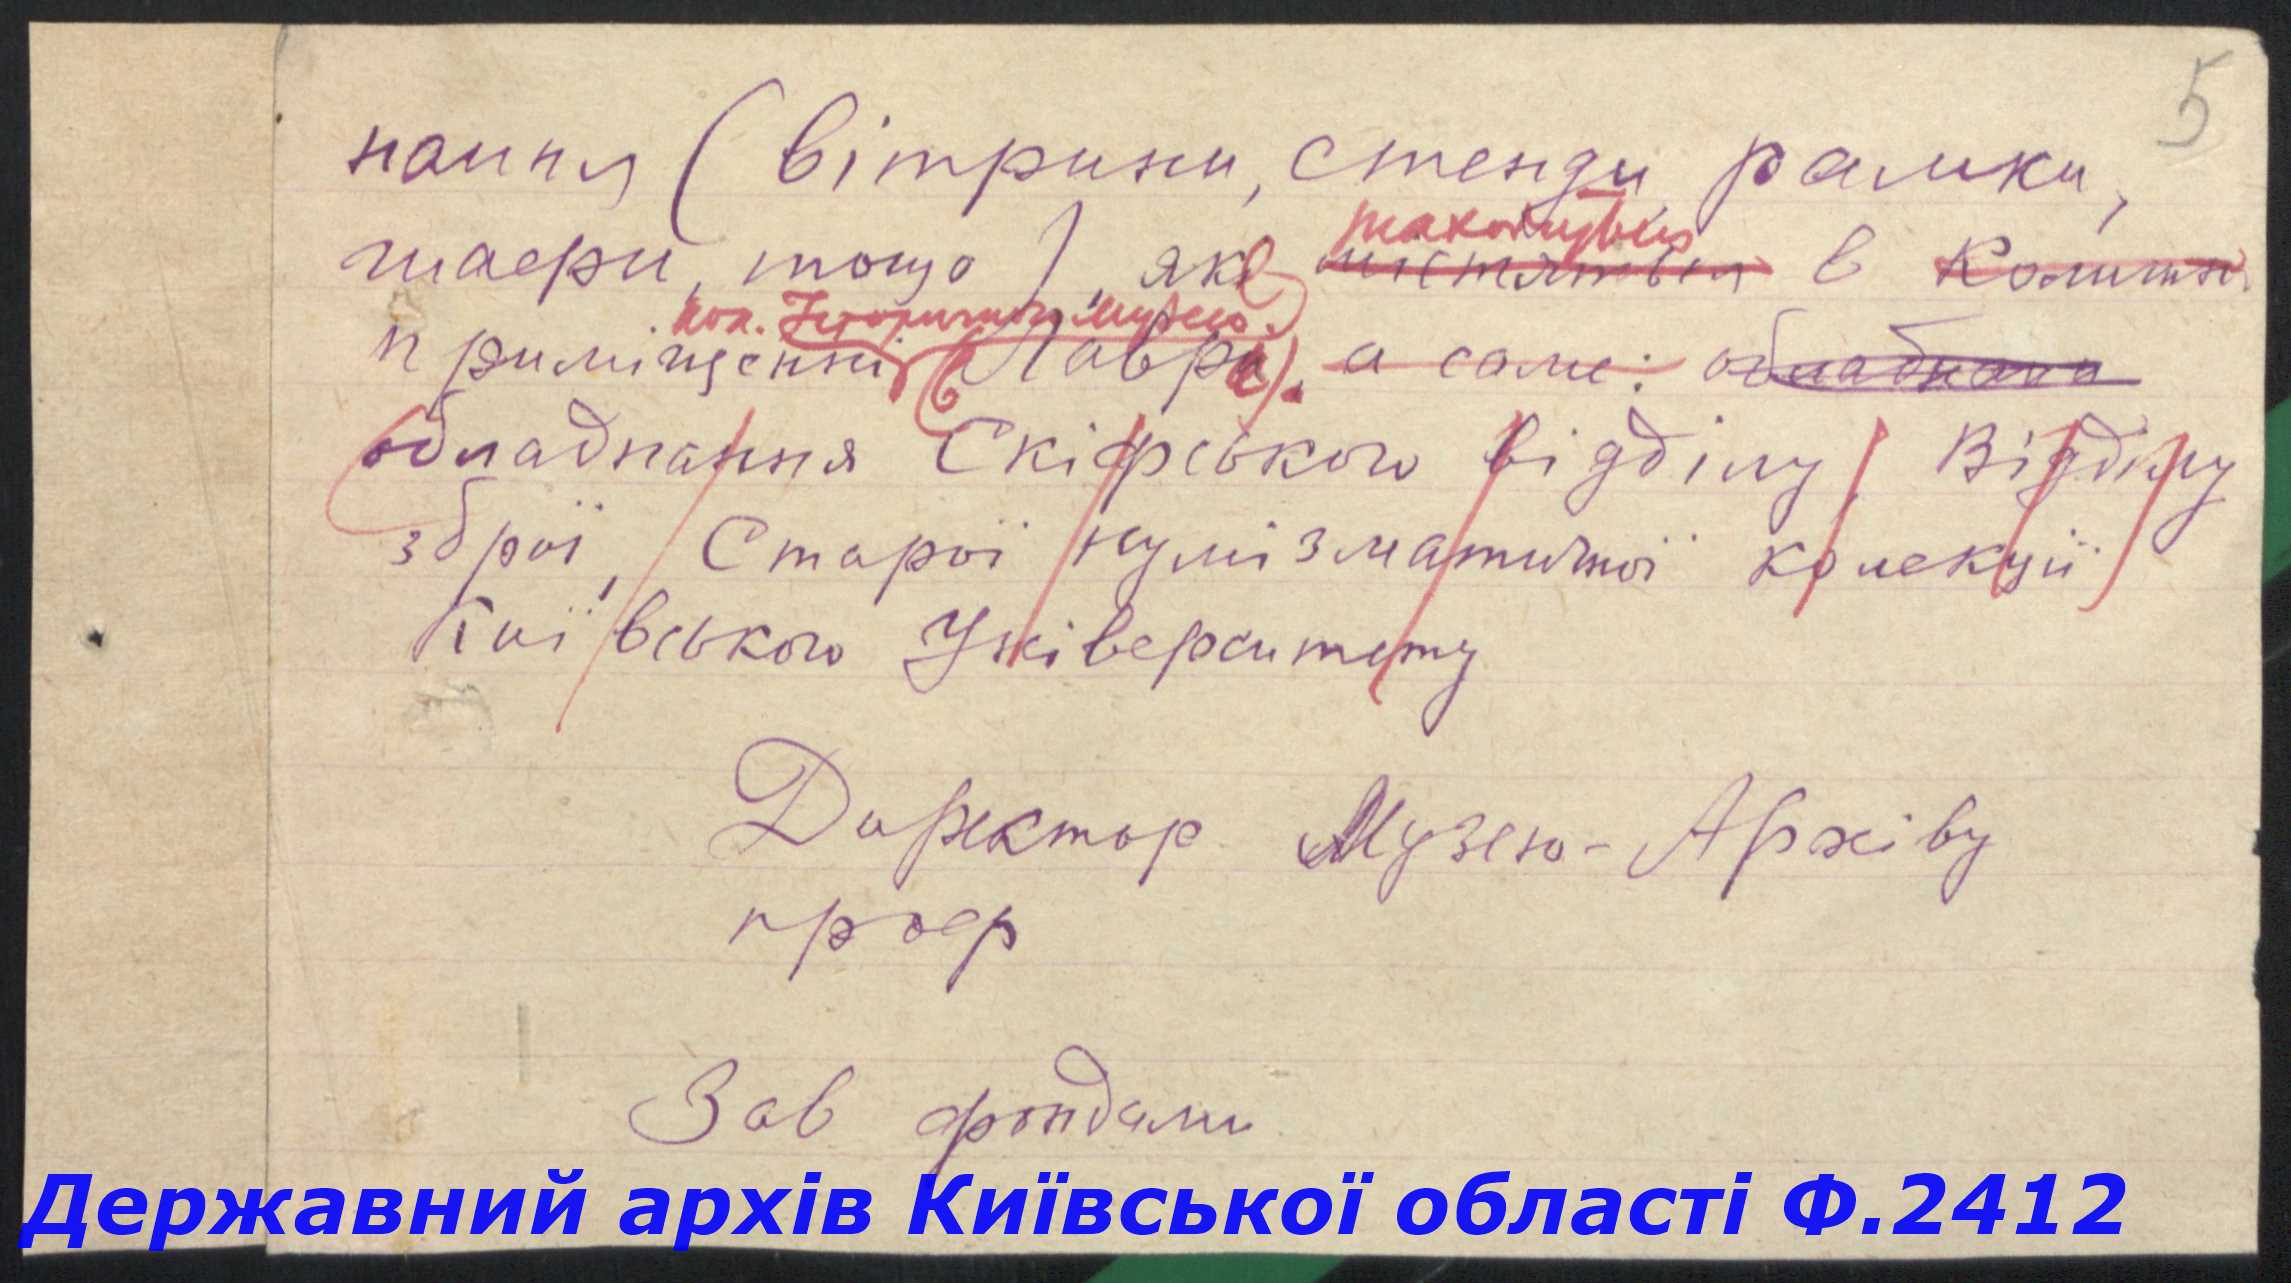 5
нання (вітрини, стенди, рамки,
шафи, тощо), яке містяться в Колишн.
кол. Історичного музею.
приміщенні Лаври, а саме: обладнана
обладнання Скіфського відділу, Відділу
зброї, Старої нумізматичної колекції
Київського Університету
Директор Музею-Архіву
проф
Зав фондами
Державний архів Київської області Ф.2412